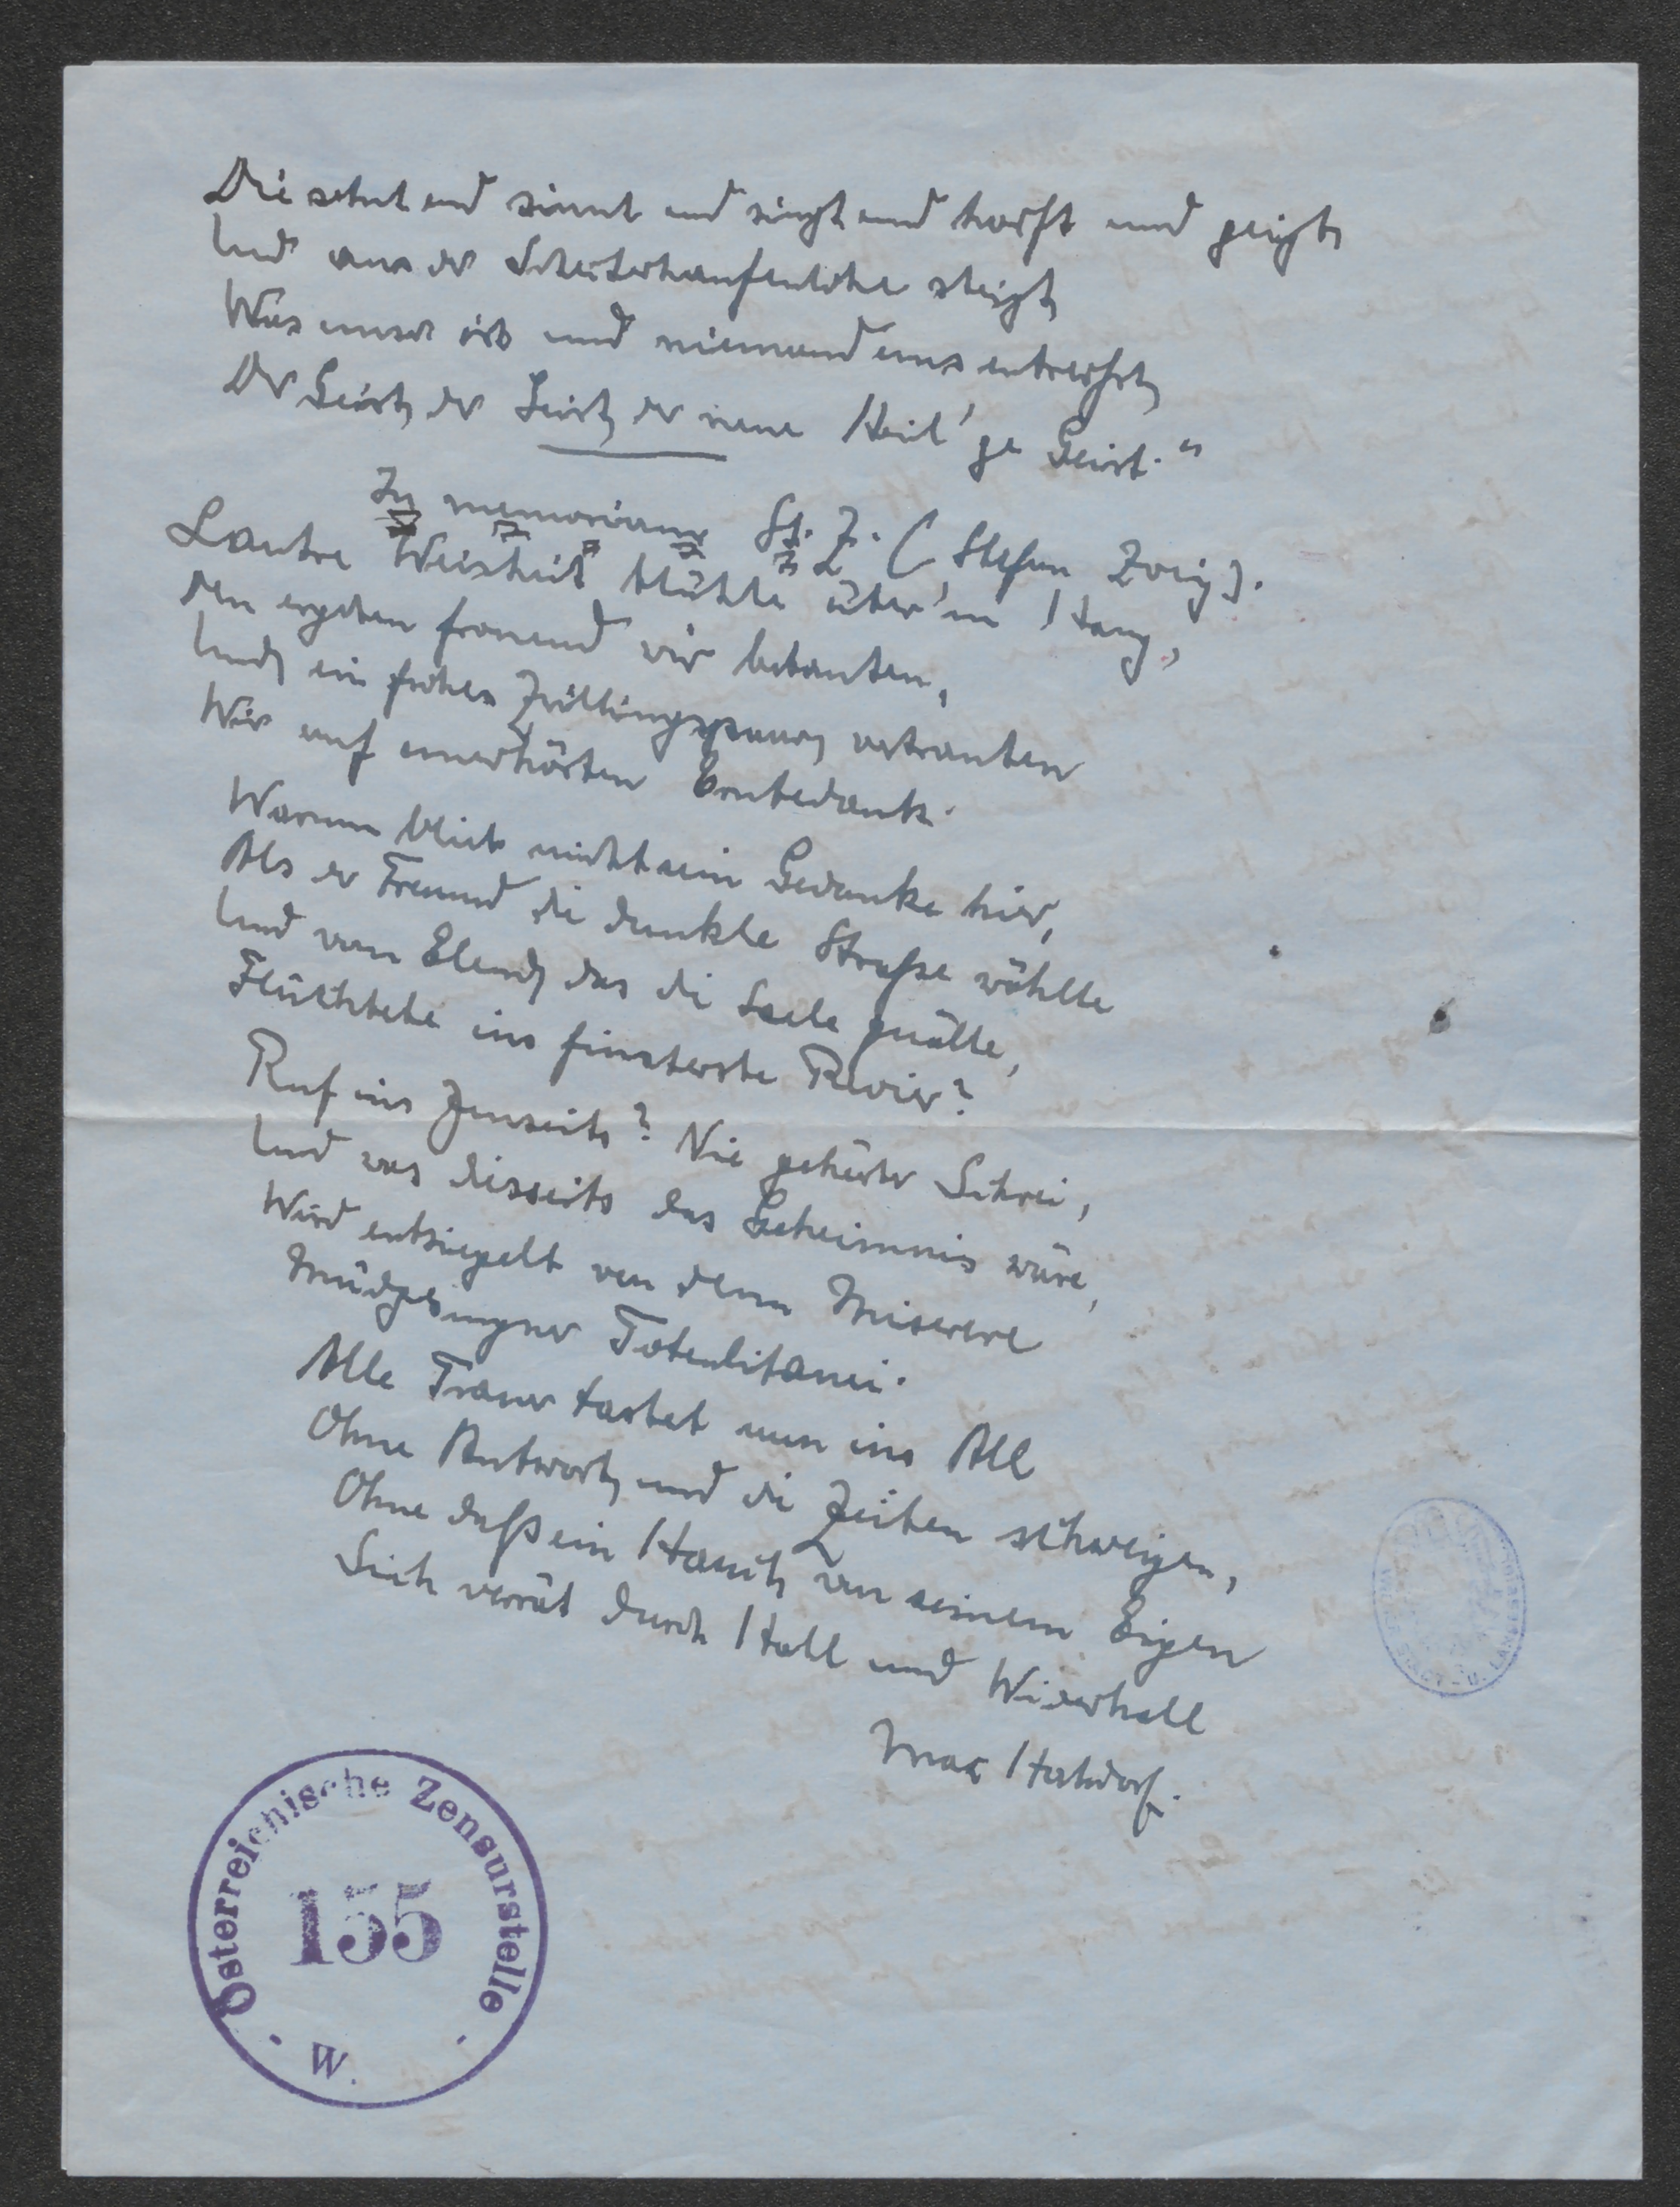 Die sehnt und sinnt und singt und harft und geigt,
Und aus der Scheiterhaufenlohe steigt,
Was unser ist und niemand uns entreißt,
Der Geist, der Geist, der neue Heil'ge Geist."
In memoriam St. Z. (Stefan Zweig).
Lautre Weisheit blühte über'm Hang,
Den ergeben fronend wir bebauten,
Und, ein frohes Zwillingspaar, vertrauten
Wir auf unerhörten Erntedank.
Warum blieb nicht sein Gedanke hier,
Als der Freund die dunkle Straße wählte
Und vom Elend, das die Seele quälte,
Flüchtete ins finsterste Revier?
Ruf ins Jenseits? Nie gehörter Schrei,
Und was diesseits das Geheimnis wäre,
Wird entsiegelt von dem Miserere
Müdgesungner Totenlitanei.
Alle Trauer tastet nun ins All
Ohne Antwort, und die Zeiten schweigen,
Ohne daß ein Hauch von seinem Eigen
Sich verrät durch Hall und Widerhall
Max Hochdorf.
Österreichische Zensurstelle
155
W.